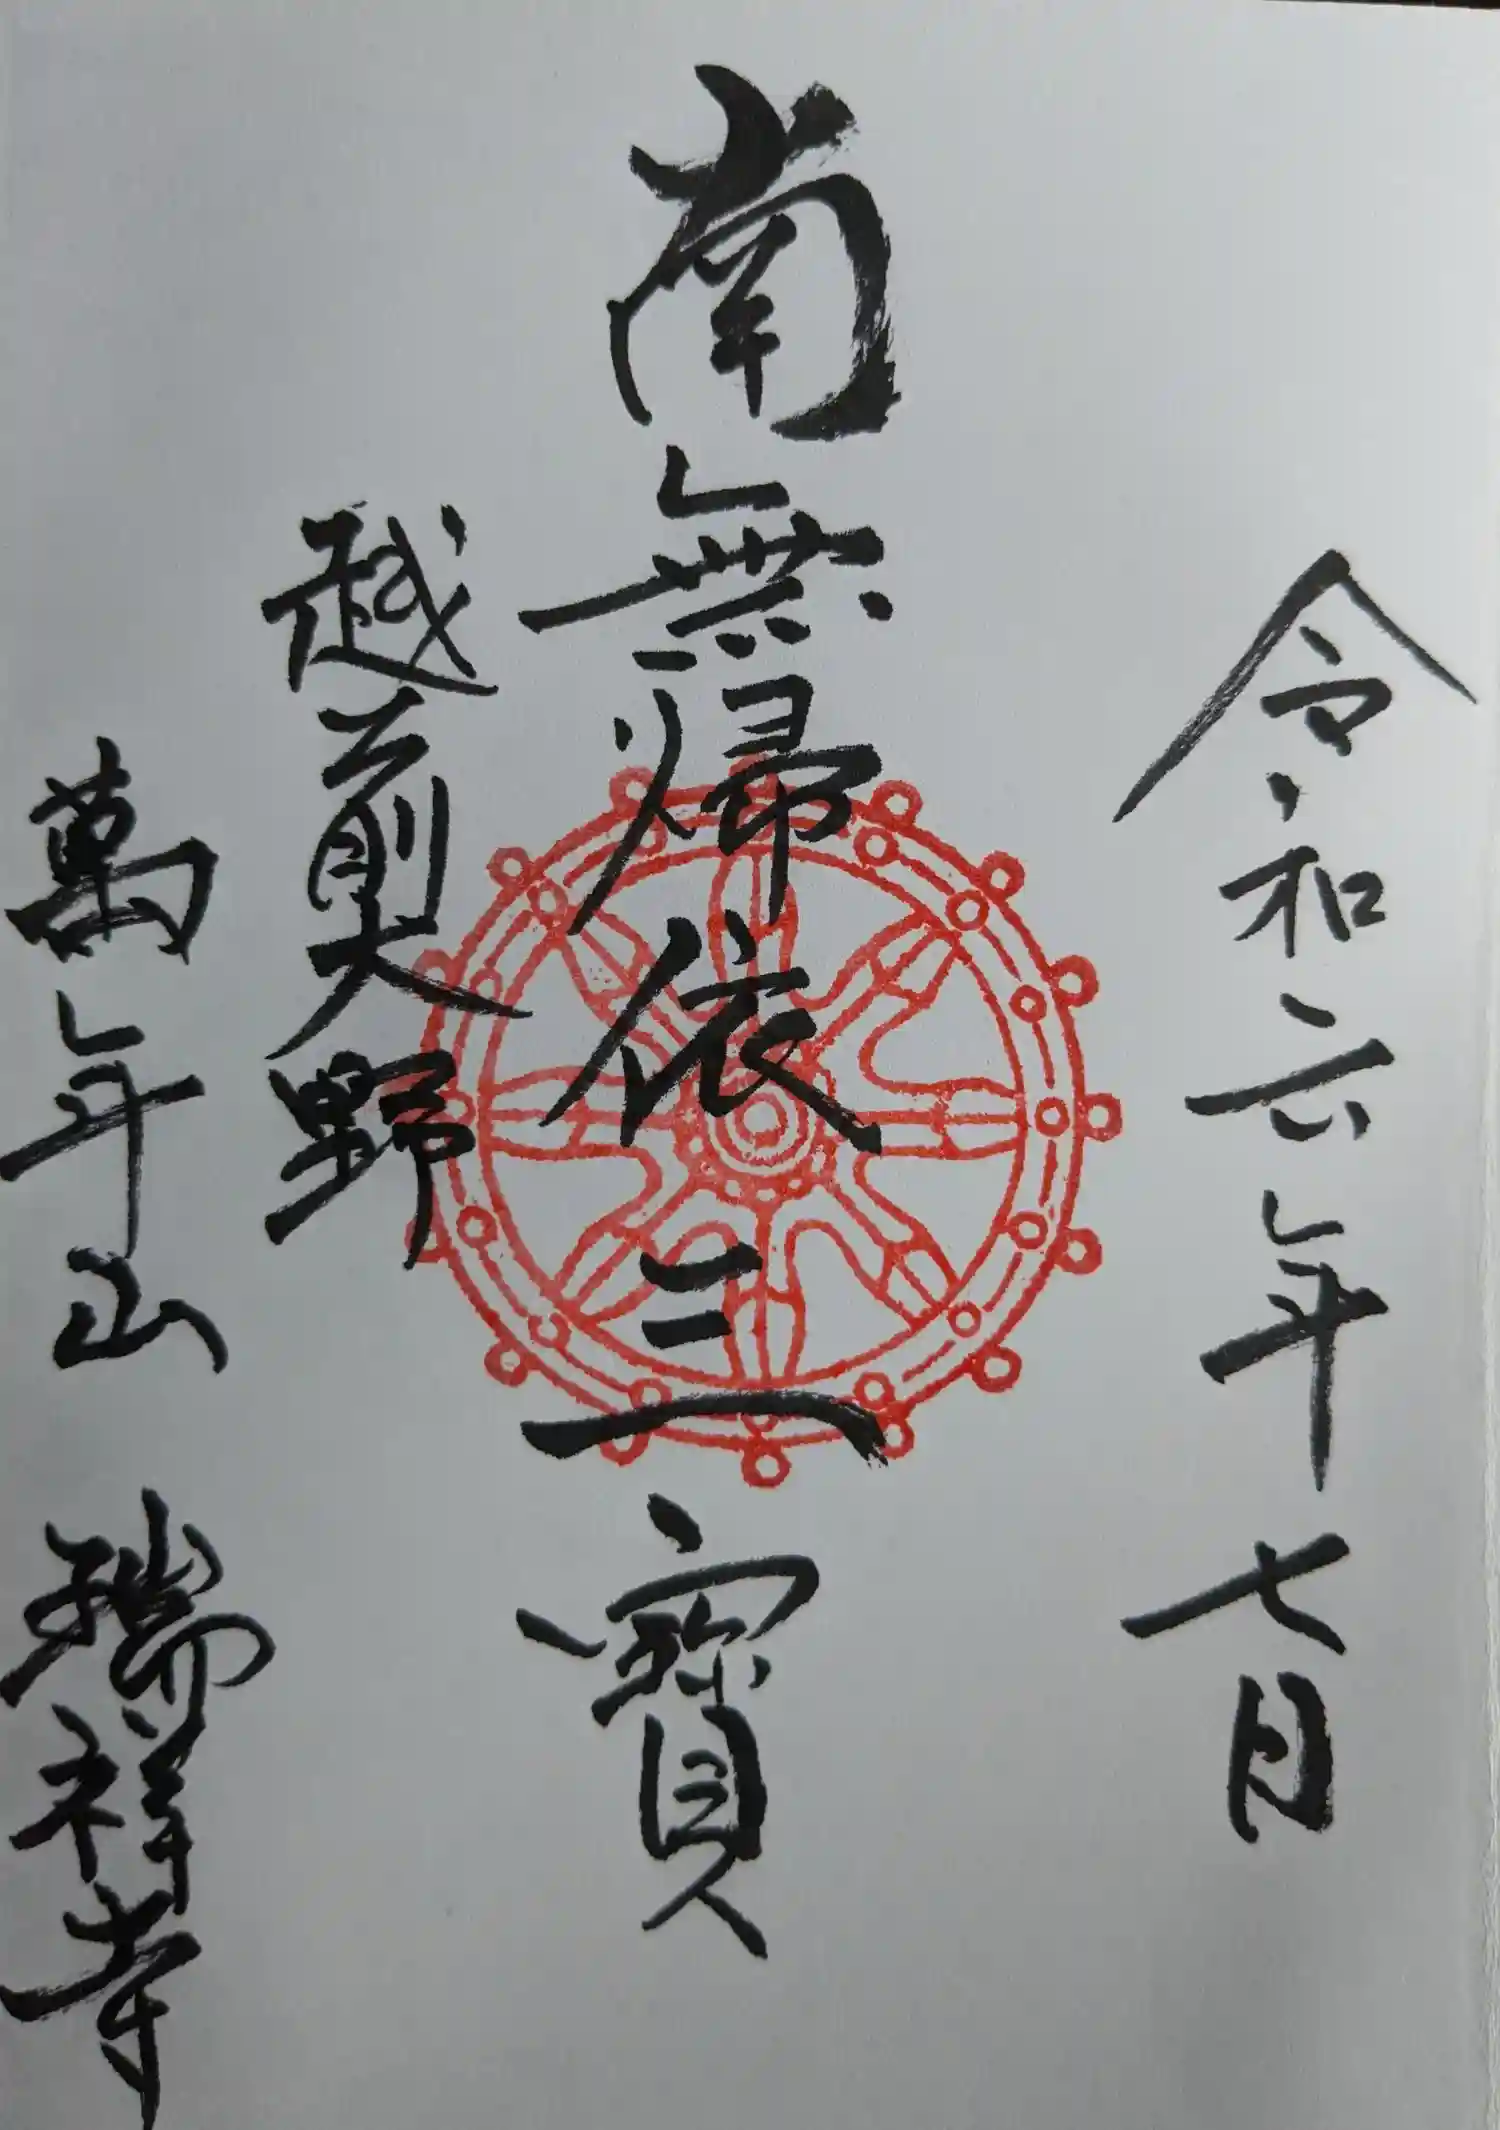 令和六年七月
南無帰依三寳
越前大野
萬年山 瑞祥寺